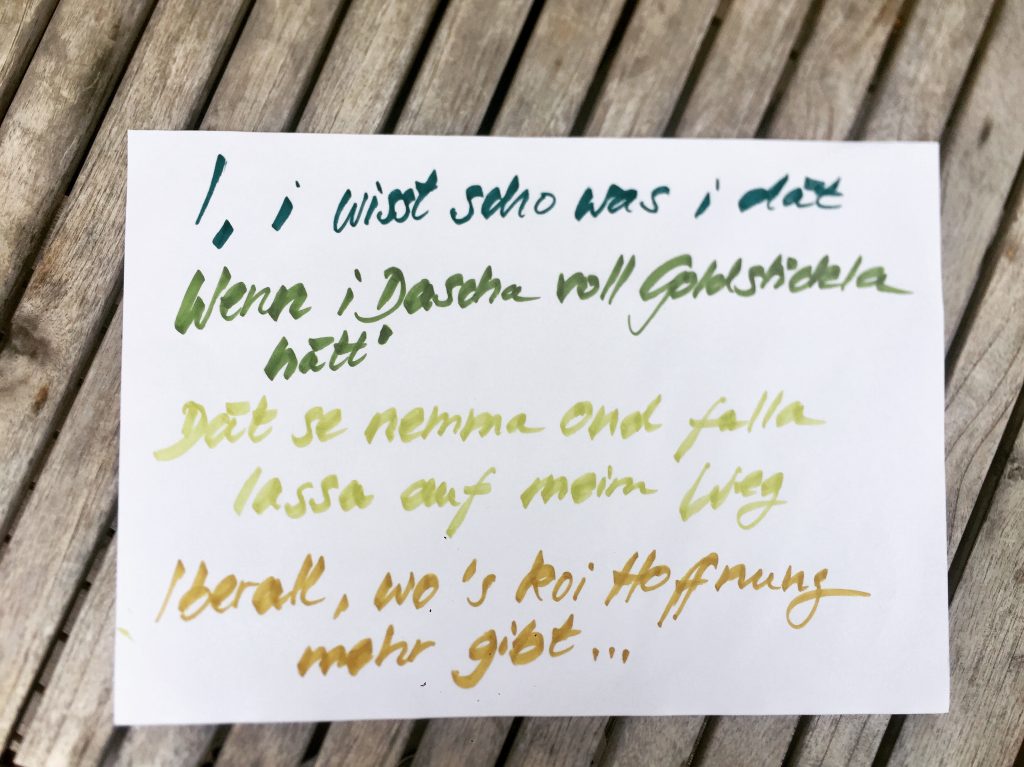 I, i wisst scho was i dät
Wenn i Dascha voll Goldstickla
hätt'
Dät se nemma ond falla
lassa auf meim Weg
Iberall, wo's koi Hoffnung
mehr gibt...